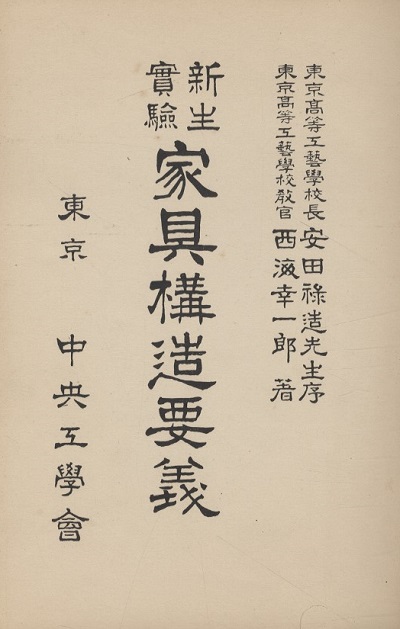 東京高等工藝學校長 安田祿造先生序
東京高等工藝學校教官 西海幸一郎 著
新生
實驗
家具構造要義
東京 中央工學會